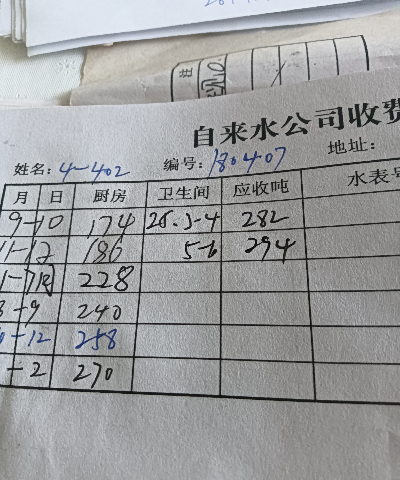 注
自来水公司收费
姓名：4-402 编号：180407 地址：
月 日 厨房 卫生间 应收吨 水表号
9-10 174 25.3-4 282
11-12 186 5-6 294
228
-9 240
-12 258
-2 270